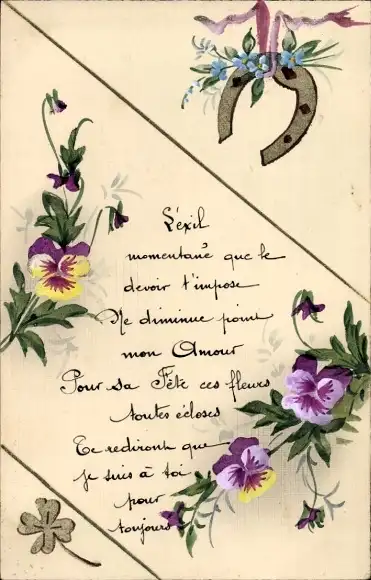 L'éxil
momentané que le
devoir t'impose
Ne diminue point
mon Amour
Pour sa Fête ces fleurs
toutes écloses
Te rediront que
je suis à toi
pour
toujours